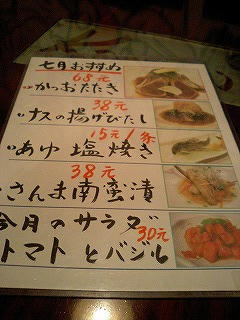 七月おすすめ
68元
かつおたたき
38元
ナスの揚げびたし
15元/条
あゆ塩焼き
38元
さんま南蛮漬
今月のサラダ
30元
トマトとバジル